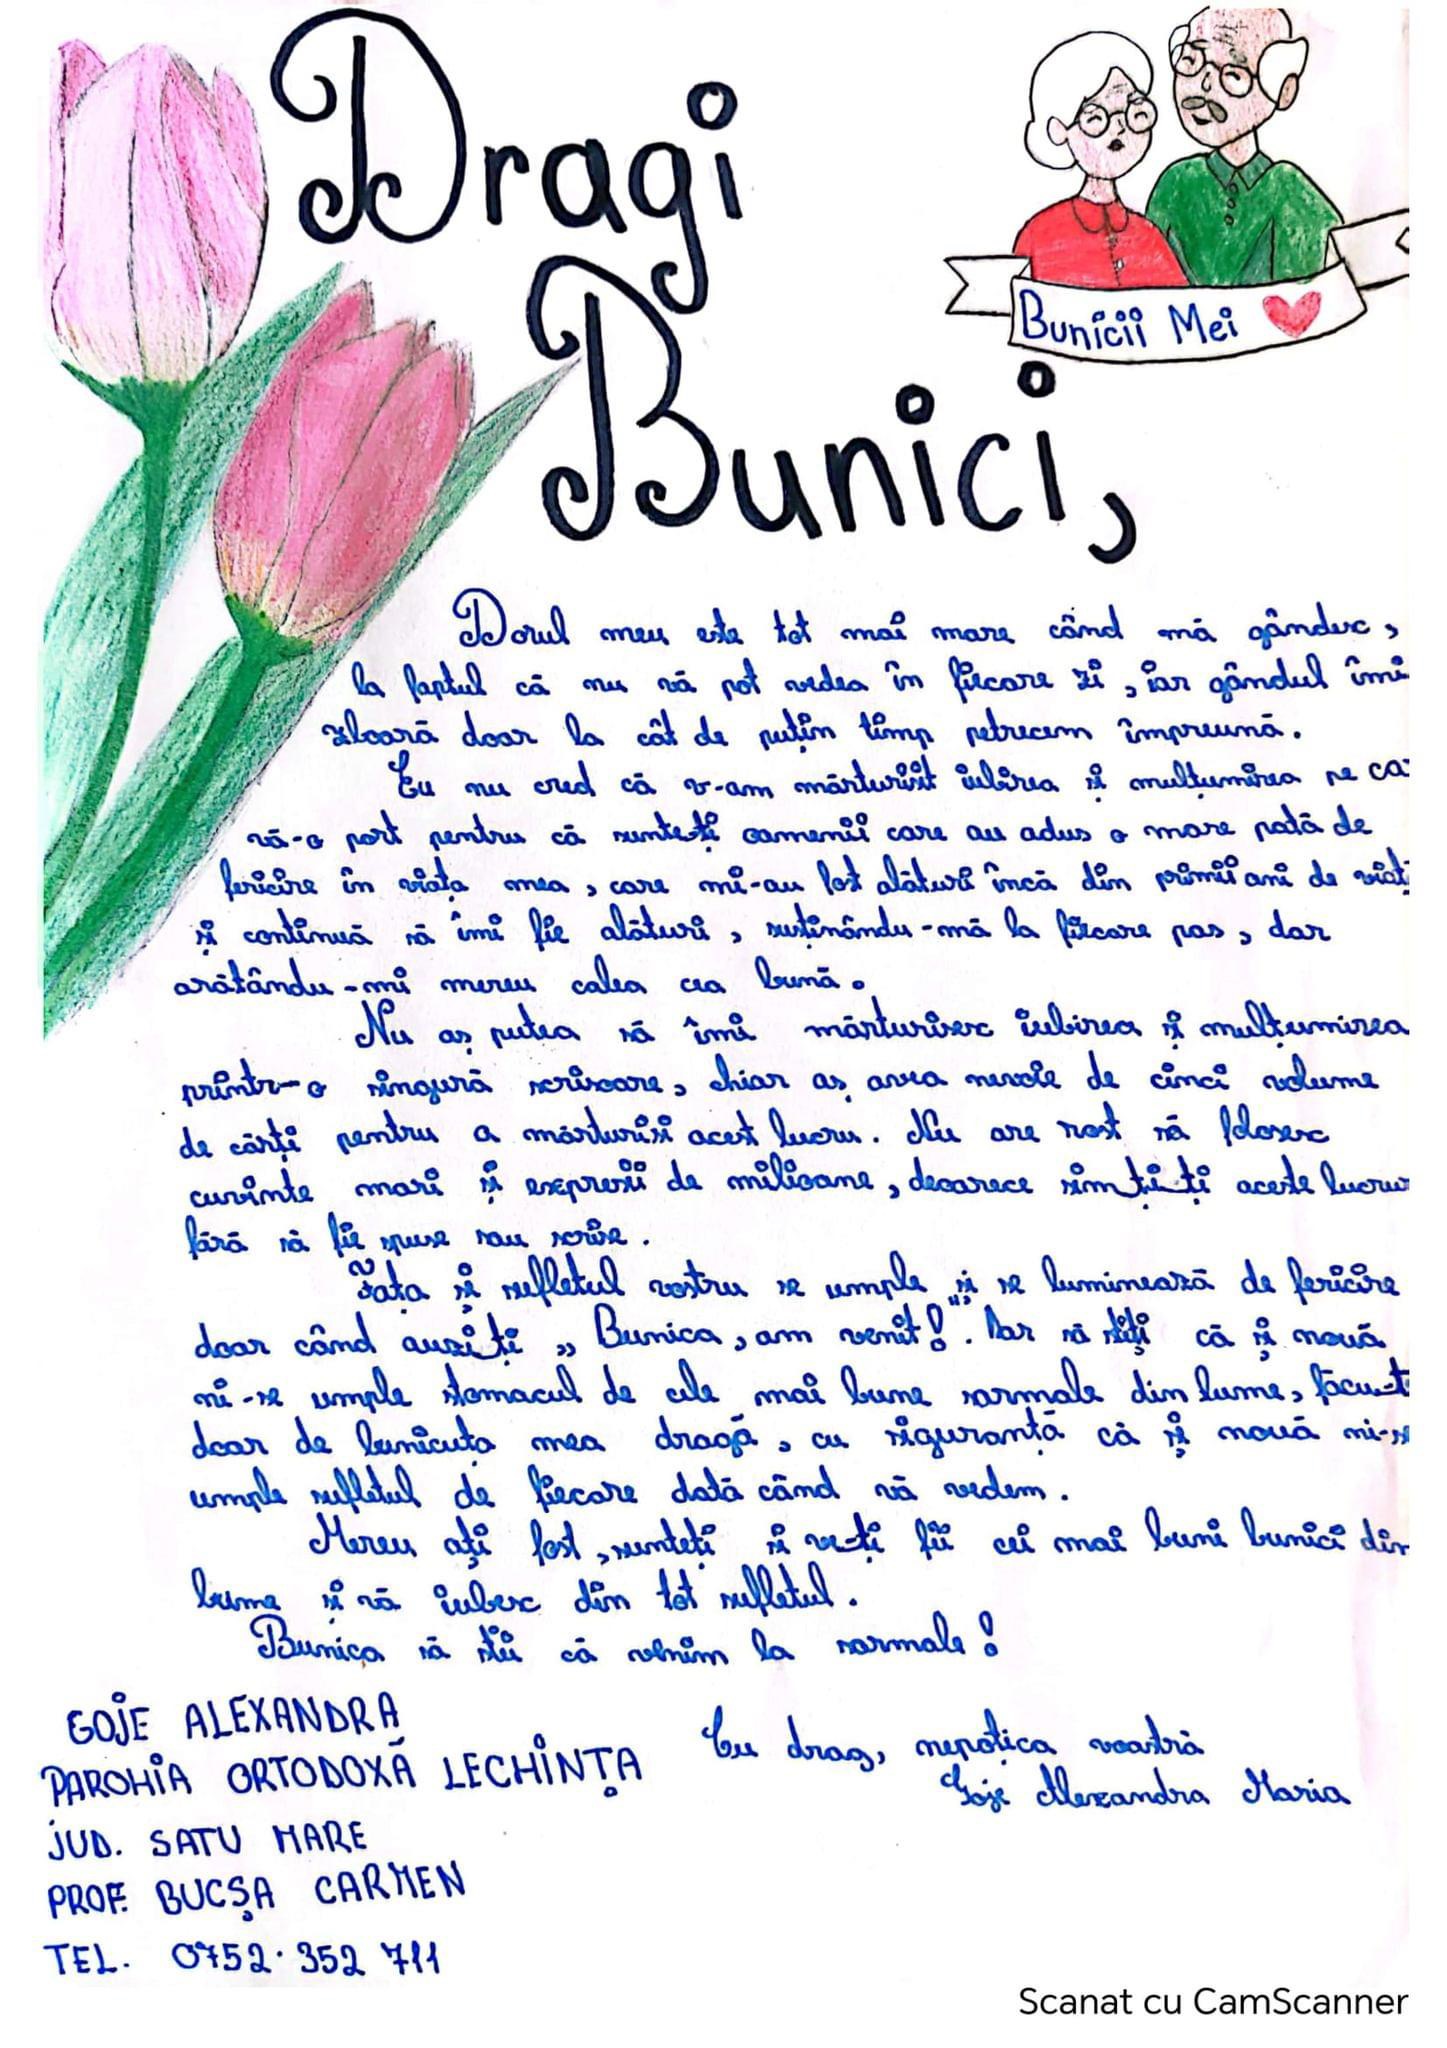 Dragi
Bunici,
Bunicii Mei
Dorul meu este tot mai mare când mă gândesc,
la faptul că nu vă pot vedea în fiecare zi, iar gândul îmi
zboară doar la cât de puțin timp petrecem împreună.
Eu nu cred că v-am mărturisit iubirea și mulțumirea pe ca
vă-o port pentru că sunteți oamenii care au adus o mare pată de
fericire în viața mea, care mi-au fost alături încă din primii ani de viaț
și continuă să îmi fie alături, susținându-mă la fiecare pas, dar
arătându-mi mereu calea cea bună.
Nu aș putea să îmi mărturisesc iubirea și mulțumirea
printr-o singură scrisoare, chiar aș avea nevoie de cinci volume
de cărți pentru a mărturisi acest lucru. Nu are rost să folosesc
cuvinte mari și expresii de milioane, deoarece simțiți aceste lucrur
fără să fie spuse sau scrise.
Fața și sufletul vostru se umple și se luminează de fericire
doar când auziți „Bunica, am venit!". Dar să știți că și nouă
ni-se umple stomacul de cele mai bune sarmale din lume, făcut
doar de bunicuța mea dragă, cu siguranță că și nouă ni-s
umple sufletul de fiecare dată când vă vedem.
Mereu ați fost, sunteți și ve-ți fii cei mai buni bunici din
lume și vă iubesc din tot sufletul.
Bunica să știi că venim la sarmale!
GOJE ALEXANDRA
PAROHIA ORTODOXĂ LECHINȚA
JUD. SATU MARE
PROF. BUCȘA CARMEN
TEL. 0752.352 711
Cu drag, nepoțica voastră
Goje Alexandra Maria
Scanat cu CamScanner